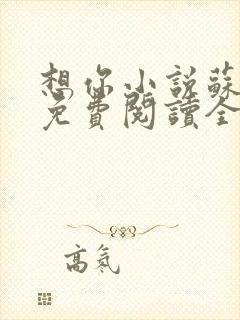 想你小說蘇
免費閱讀全
高氣